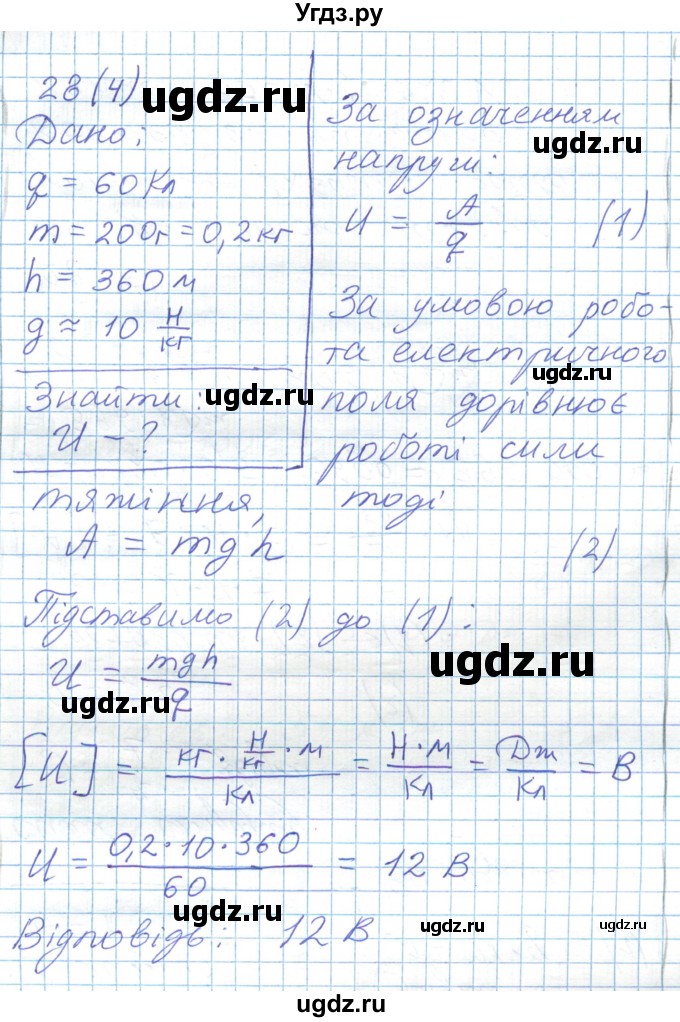 Угдз.ру
28 (4)
ugdz.ru
Дано:
q = 60 Кл
m = 200г = 0,2 кг
h = 360 м
g ≈ 10 Н/кг
Знайти:
ugdz.ru
U - ?
За означенням
ugdz.ru
напруги:
U = A/q (1)
За умовою робо-
та електричного
ugdz.ru
поля дорівнює
роботі сили
тяжіння, тоді
A = mgh (2)
Підставимо (2) до (1):
ugdz.ru
U = mgh/q
ugdz.ru
[U] = кг · Н/кг · м / Кл = Н · м / Кл = Дж / Кл = В
U = 0,2 · 10 · 360 / 60 = 12 В
ugdz.ru
ugdz.ru
Відповідь: 12 В
ugdz.ru